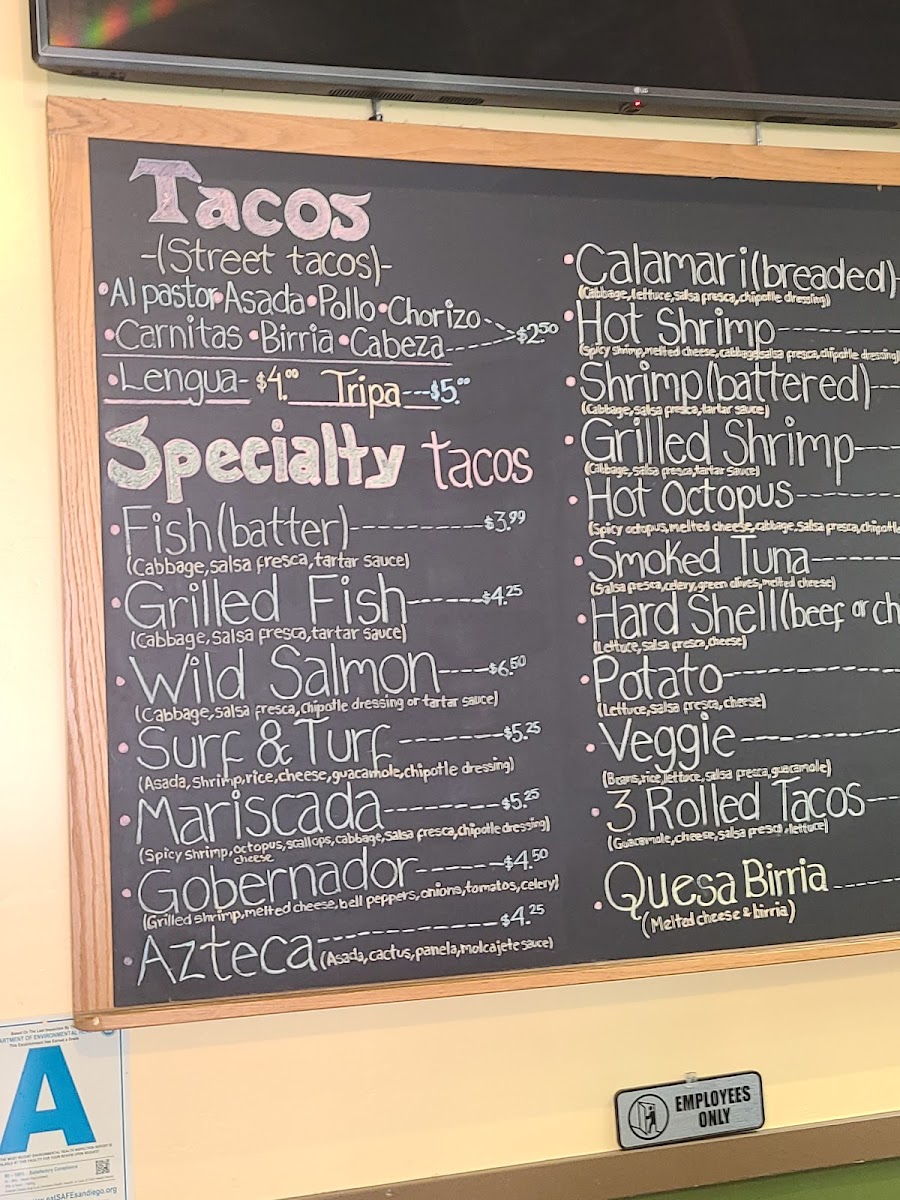 LG
Tacos
-(Street tacos)-
•Al pastor•Asada•Pollo•Chorizo
•Carnitas •Birria •Cabeza $2.50
•Lengua- $4.00 Tripa---$5.00
Specialty tacos
•Fish(batter)----------$3.99
(Cabbage, salsa fresca, tartar sauce)
•Grilled Fish------$4.25
(Cabbage, salsa fresca, tartar sauce)
•Wild Salmon----$6.50
(Cabbage, salsa fresca, chipotle dressing or tartar sauce)
•Surf & Turf--------$5.25
(Asada, shrimp, rice, cheese, guacamole, chipotle dressing)
•Mariscada---------$5.25
(Spicy shrimp, octopus, scallops, cabbage, salsa fresca, chipotle dressing)
cheese
•Gobernador------$4.50
(Grilled shrimp, melted cheese, bell peppers, onions, tomatos, celery)
•Azteca--------------$4.25
(Asada, cactus, panela, molcajete sauce)
•Calamari(breaded)-
(Cabbage, lettuce, salsa fresca, chipotle dressing)
•Hot Shrimp--------
(Spicy shrimp, melted cheese, cabbage, salsa fresca, chipotle dressing)
•Shrimp(battered)---
(Cabbage, salsa fresca, tartar sauce)
•Grilled Shrimp----
(Cabbage, salsa fresca, tartar sauce)
•Hot Octopus-------
(Spicy octopus, melted cheese, cabbage, salsa fresca, chipotle
•Smoked Tuna------
(Salsa fresca, celery, green olives, melted cheese)
•Hard Shell(beef or ch
(Lettuce, salsa fresca, cheese)
•Potato------------
(Lettuce, salsa fresca, cheese)
•Veggie-----------
(Beans, rice, lettuce, salsa fresca, guacamole)
•3 Rolled Tacos--
(Guacamole, cheese, salsa fresca, lettuce)
•Quesa Birria-----
(Melted cheese & birria)
A
EMPLOYEES
ONLY
eatSAFEsandiego.org